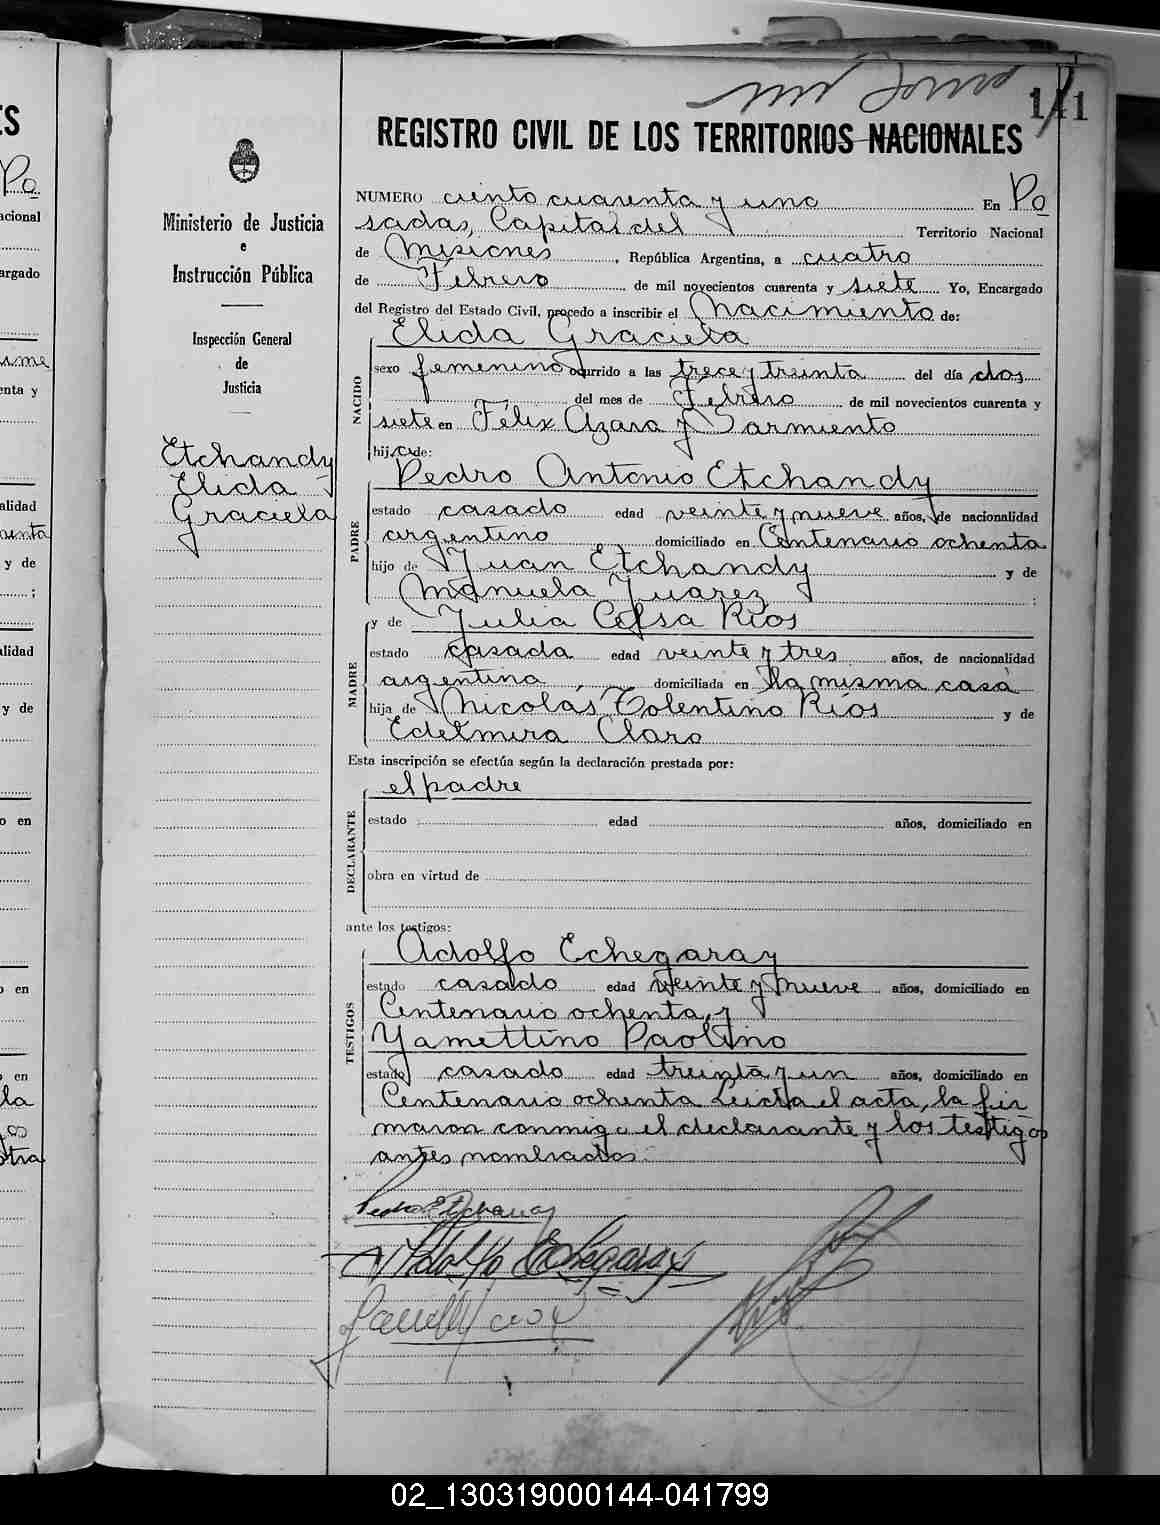 141
REGISTRO CIVIL DE LOS TERRITORIOS NACIONALES
Ministerio de Justicia
e
Instrucción Pública
Inspección General
de
Justicia
Etchandy
Elida
Graciela
NUMERO ciento cuarenta y uno En Po
sadas, Capital del Territorio Nacional
de Misiones, República Argentina, a cuatro
de Febrero de mil novecientos cuarenta y siete Yo, Encargado
del Registro del Estado Civil, procedo a inscribir el Nacimiento de:
Elida Graciela
NACIDO
sexo femenino ocurrido a las trece y treinta del día dos
del mes de Febrero de mil novecientos cuarenta y
siete en Félix Azara y Sarmiento
hija de:
Pedro Antonio Etchandy
PADRE
estado casado edad veinte y nueve años, de nacionalidad
argentino domiciliado en Centenario ochenta
hijo de Juan Etchandy y de
Manuela Juarez ;
y de Julia Celsa Ríos
MADRE
estado casada edad veinte y tres años, de nacionalidad
argentina domiciliada en la misma casa
hija de Nicolás Tolentino Ríos y de
Edelmira Claro
Esta inscripción se efectúa según la declaración prestada por:
el padre
DECLARANTE
estado edad años, domiciliado en
obra en virtud de
ante los testigos:
Adolfo Echegaray
TESTIGOS
estado casado edad veinte y nueve años, domiciliado en
Centenario ochenta y
Yamettino Paolino
estado casado edad treinta y un años, domiciliado en
Centenario ochenta Leida el acta, la fir
maron conmigo el declarante y los testigos
antes nombrados.
Pedro Etchandy
Adolfo Echegaray
02_130319000144-041799